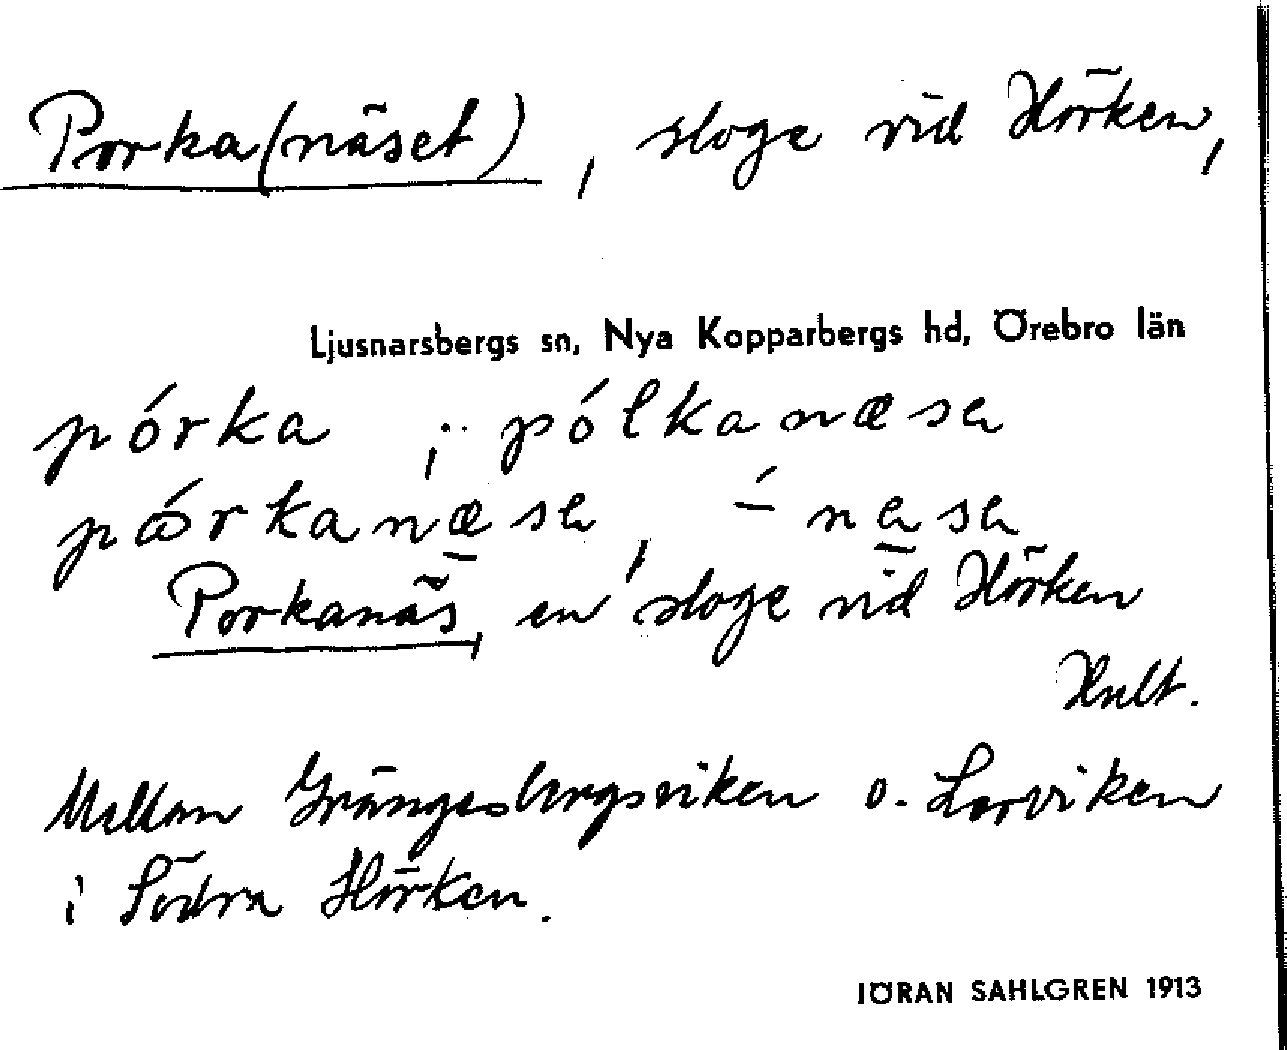 Porka(näset), sloge vid Hörken,
Ljusnarsbergs sn, Nya Kopparbergs hd, Örebro län
pórka ; pólkanæsa
pǿrkanæ̱se, -́ na̱sa
Porkanäs, en sloge vid Hörken
Hult.
Mellan Grängesbergsviken o. Lorviken
i Södra Hörken.
JÖRAN SAHLGREN 1913